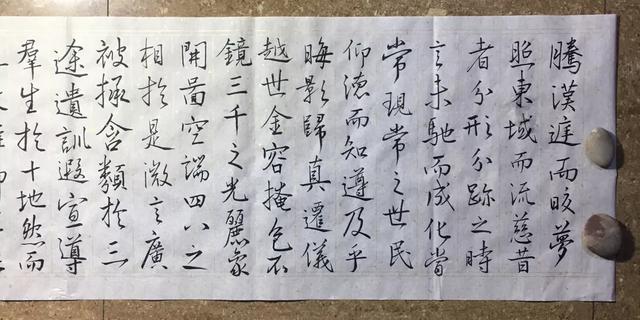 騰漢庭而皎夢
照東域而流慈昔
者分形分跡之時
言未馳而成化當
常現常之世民
仰德而知遵及乎
晦影歸真遷儀
越世金容掩色不
鏡三千之光麗象
開圖空端四八之
相於是微言廣
被拯含類於三
途遺訓遐宣導
羣生於十地然而